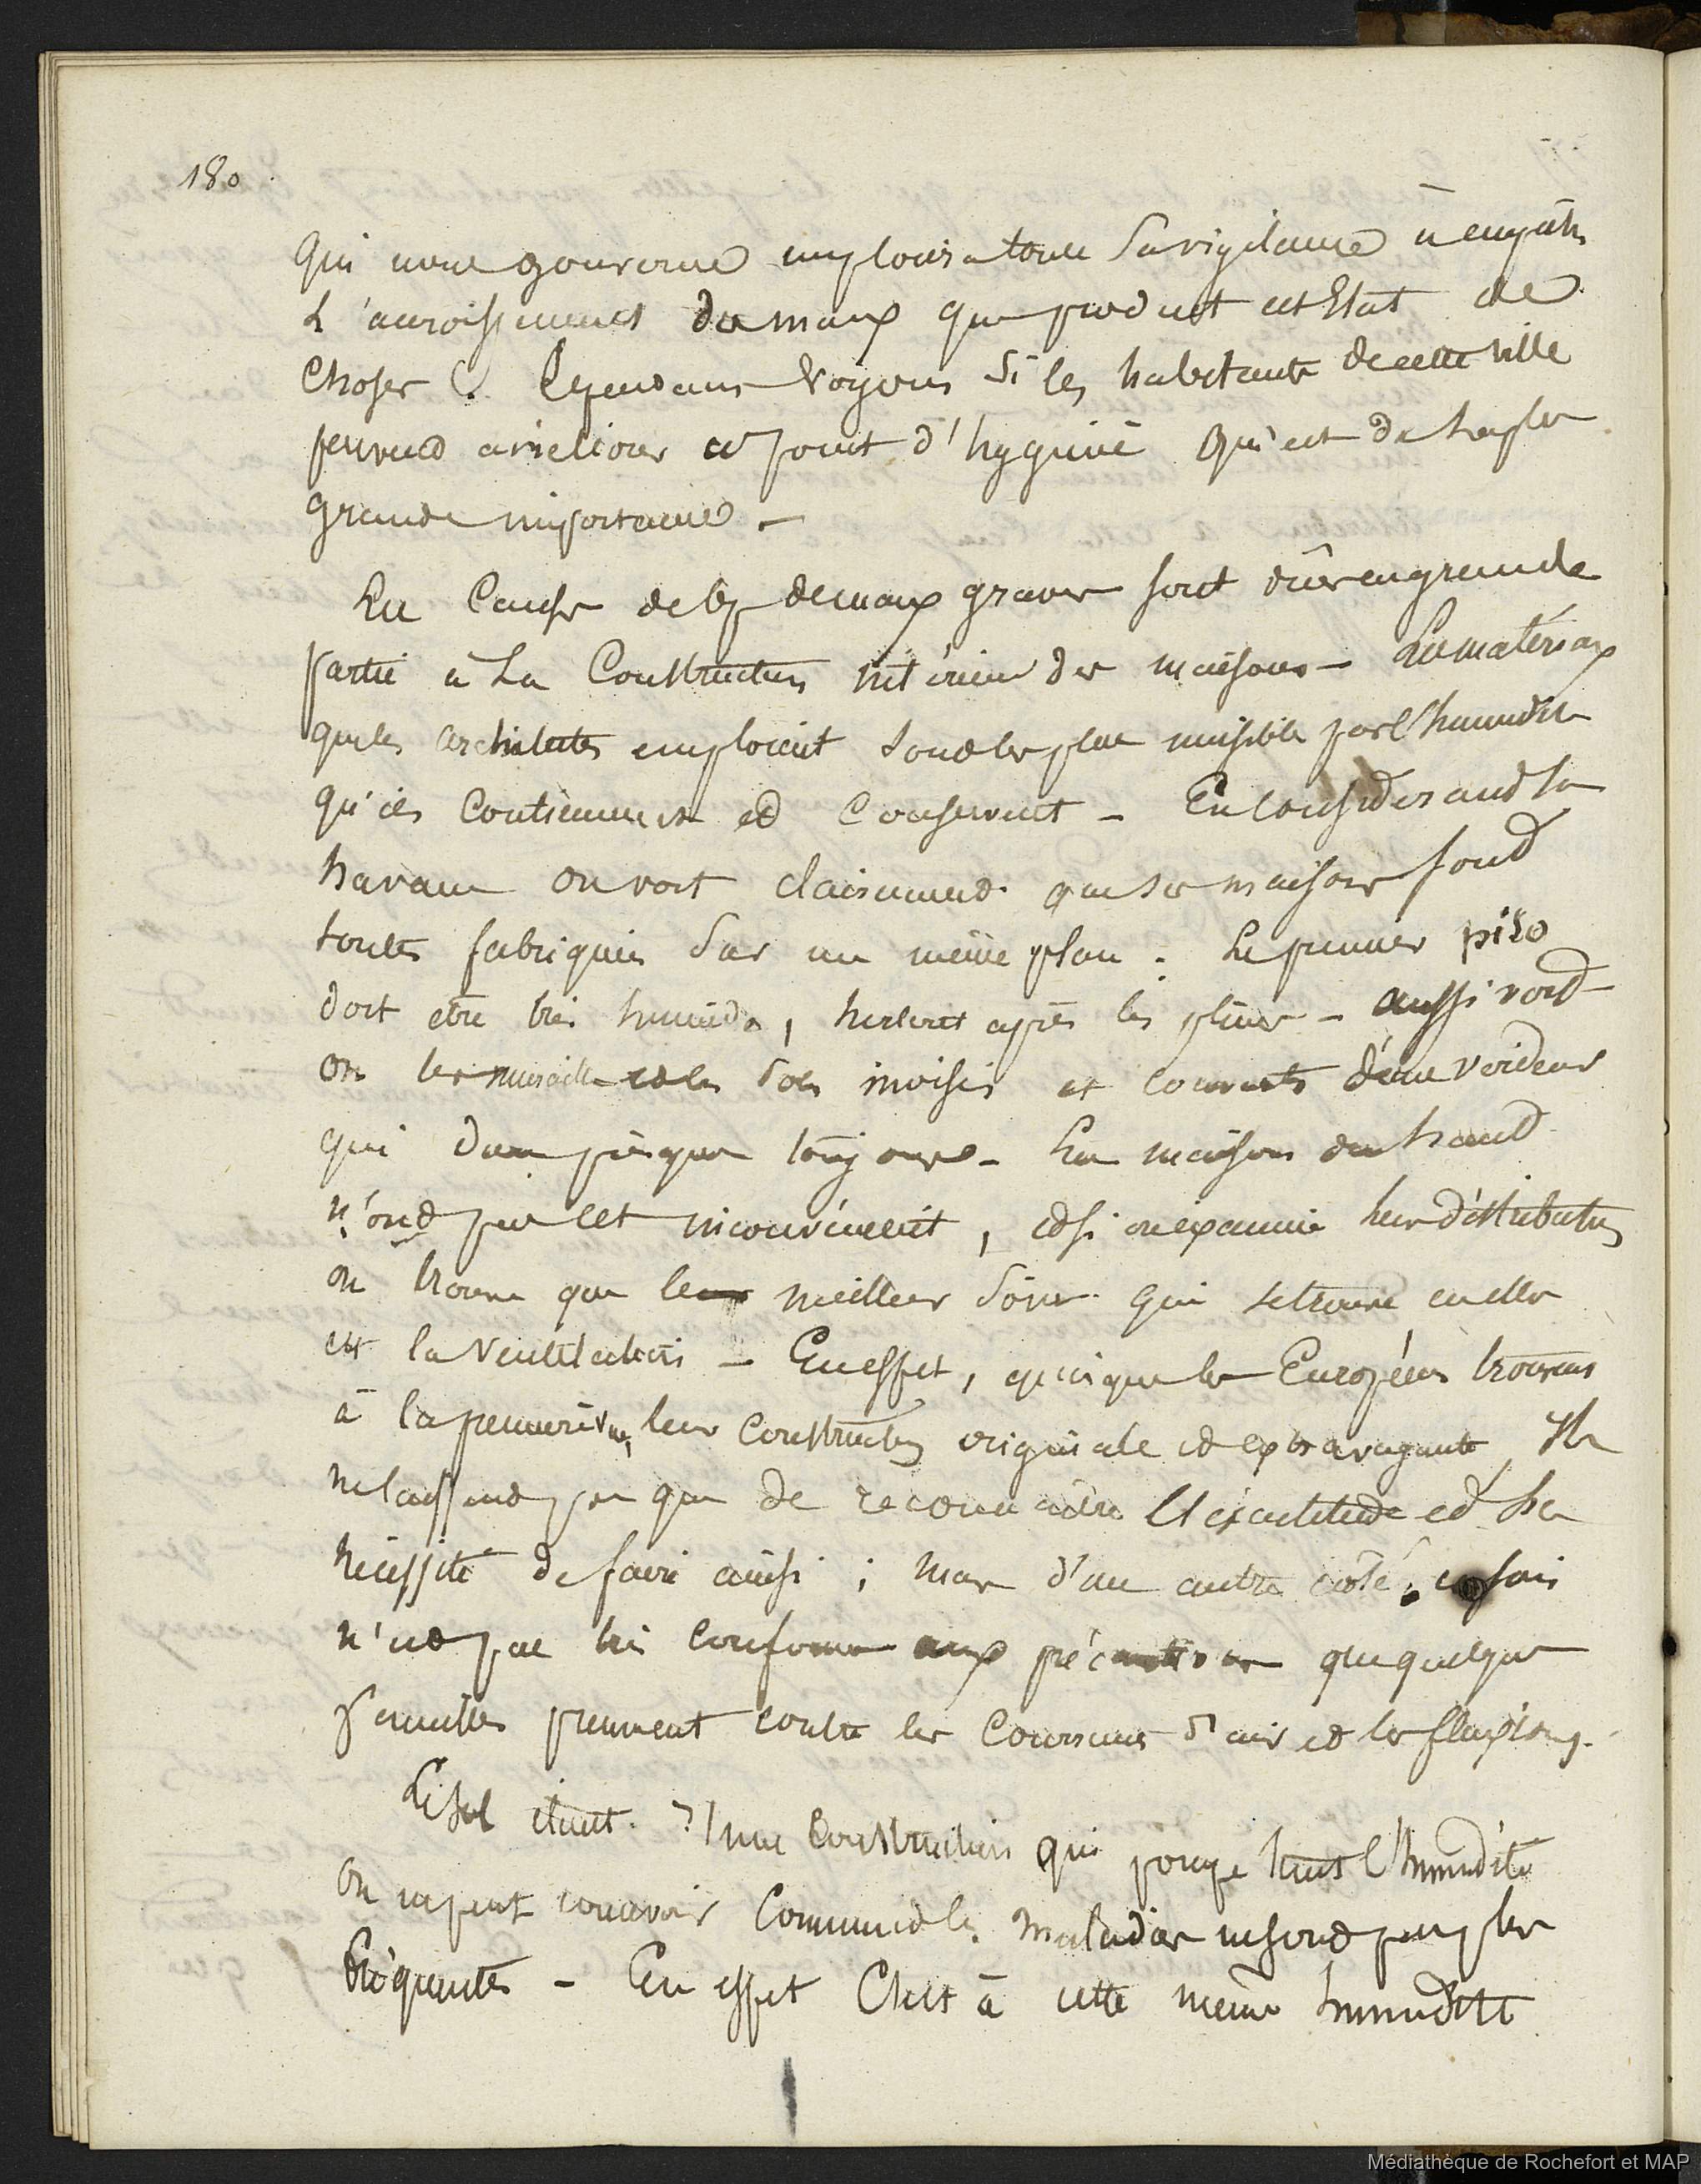 180
qui nous gouverne emploiera toute sa vigilance à empêcher
L'accroissement des maux que produit cet Etat de
Choses. Cependant Voyons si les habitants de cette ville
peuvent améliorer ce point d'hygiène qui est de la plus
grande importance -
La Cause de maux graves sont dûes en grande
partie à La Construction intérieure des maisons - Les matériaux
que les architectes emploient sont les plus nuisibles par l'humidité
qu'ils Contiennent et Conservent - En considerant la
havane on voit clairement que ses maisons sont
toutes fabriquées sur un même plan. Le premier piso
doit etre très humide, surtout après les pluies - aussi voit
on les murailles et les sols moisis et couverts d'une verdeur
qui dure presque toujours - Les maisons du haut
n'ont pas cet inconvénient, et si on examine leur distribution
on trouve que le meilleur qui se trouve en elles
est la Ventilation - En effet, quoique les Européens trouvent
à la première vue, leur Construction originale et extravagante, Ils
ne laissent pas que de reconnaitre l'exactitude et la
nécessité de faire ainsi; mais d'un autre côté,
n'est pas très conforme aux précautions que quelques
familles prennent contre les Courants d'air et les fluxions.
Le sol étant d'une Construction qui pompe toute l'humidité
on ne peut concevoir Comment les maladies ne sont pas plus
fréquentes - En effet C'est à cette même humidité
Médiathèque de Rochefort et MAP